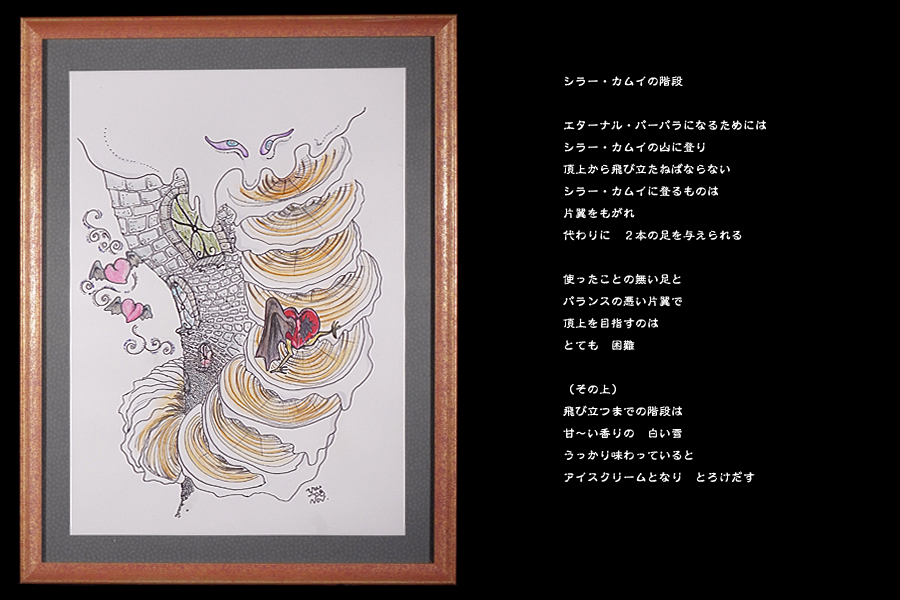 シラー・カムイの階段
エターナル・バーバラになるためには
シラー・カムイの山に登り
頂上から飛び立たねばならない
シラー・カムイに登るものは
片翼をもがれ
代わりに　２本の足を与えられる
使ったことの無い足と
バランスの悪い片翼で
頂上を目指すのは
とても　困難
（その上）
飛び立つまでの階段は
甘～い香りの　白い雪
うっかり味わっていると
アイスクリームとなり　とろけだす